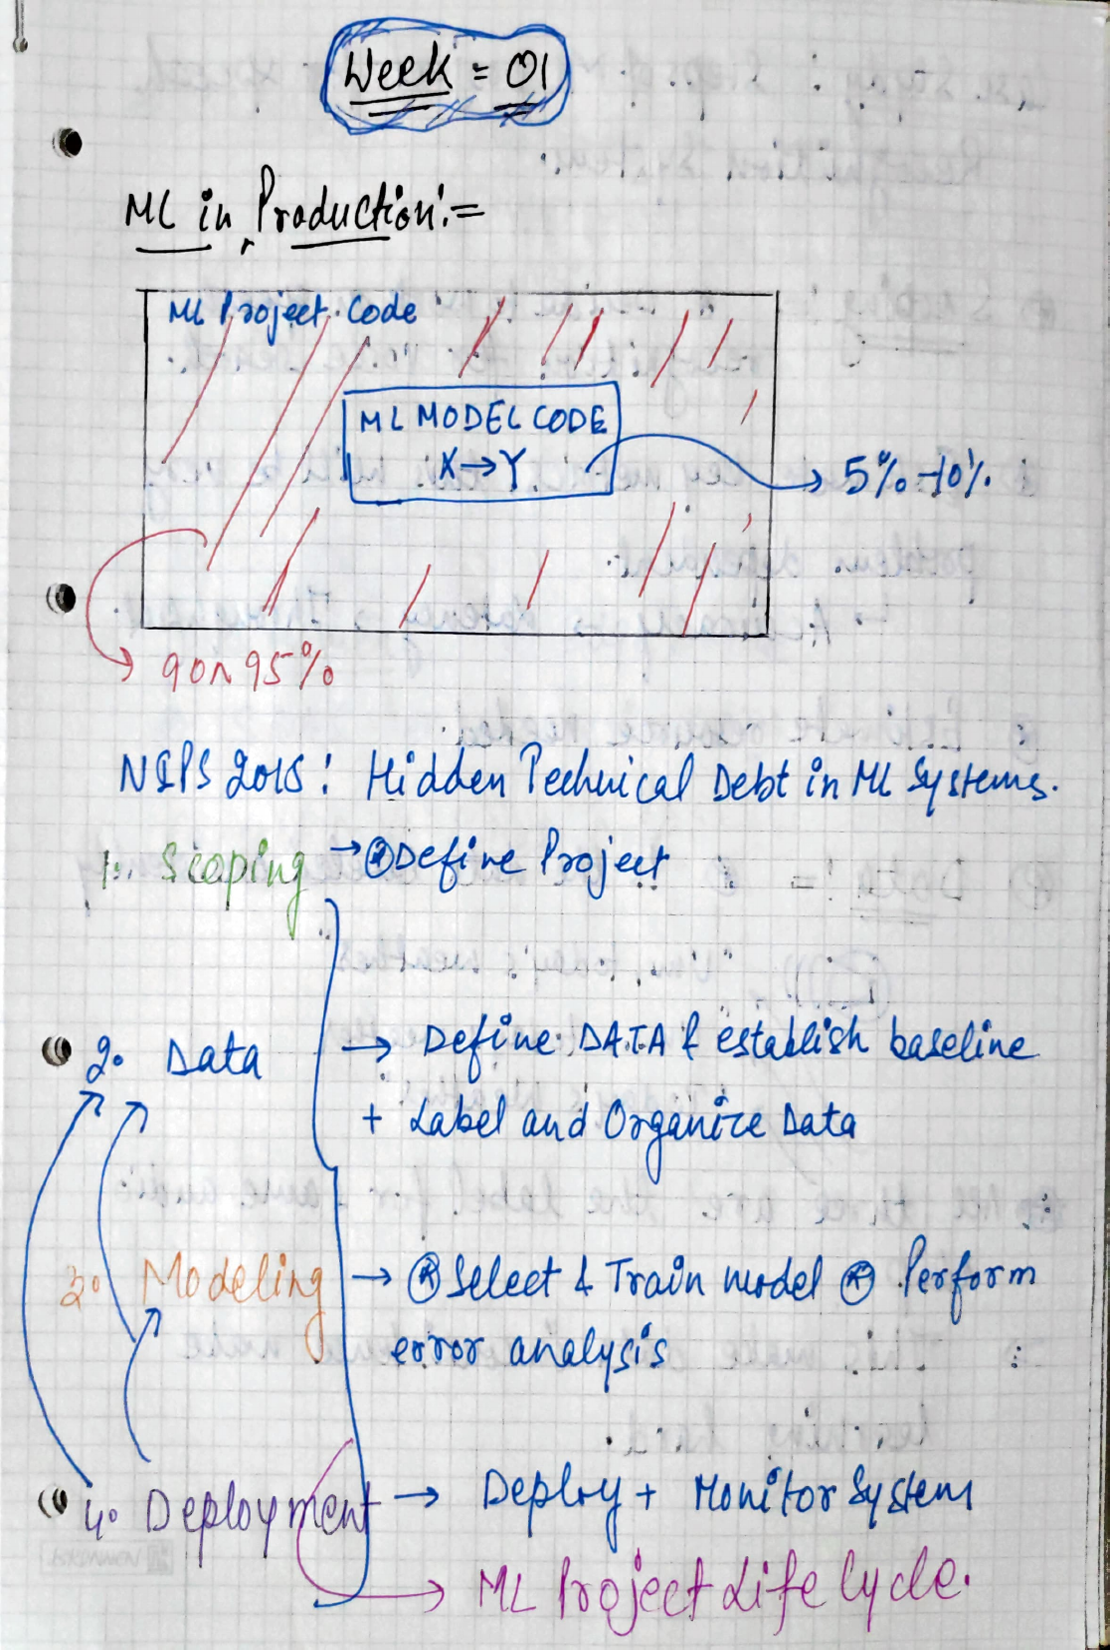 Week = 01
ML in Production:=
ML Project Code
ML MODEL CODE
X→Y
→ 5%-10%
→ 90~95%
NIPS 2015: Hidden Technical Debt in ML Systems.
1. Scoping → Define Project
2. Data → Define DATA & establish baseline
+ Label and Organize Data
3. Modeling → Select & Train model Perform
error analysis
4. Deployment → Deploy + Monitor System
→ ML Project Life Cycle.